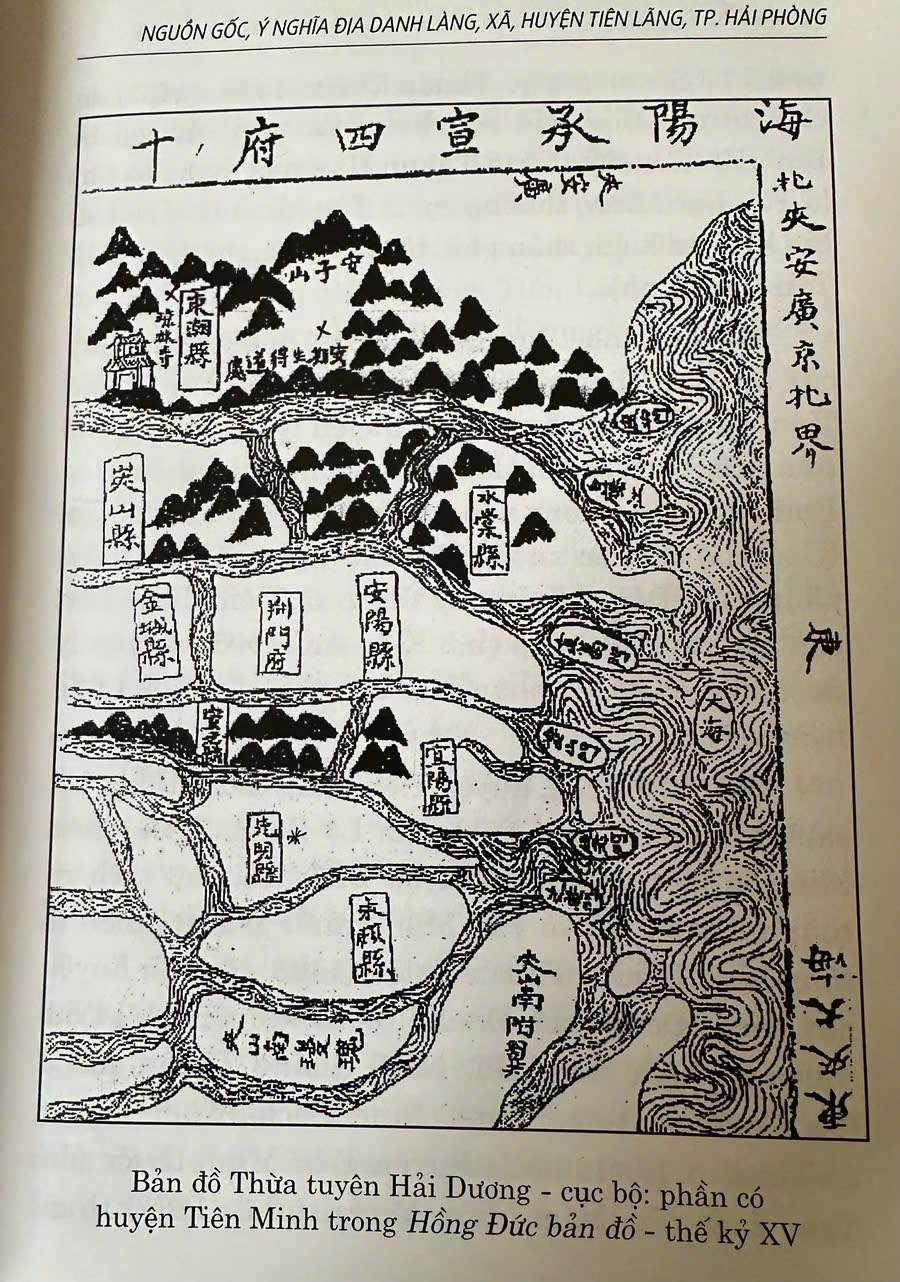 NGUỒN GỐC, Ý NGHĨA ĐỊA DANH LÀNG, XÃ, HUYỆN TIÊN LÃNG, TP. HẢI PHÒNG
海陽承宣四府十
北夾安廣京北界
安子山
東潮縣
瓊林寺
安期生得道處
炭山縣
水棠縣
金城縣
荆門府
安陽縣
大海
宜陽縣
先明縣*
永賴縣
夾山南
夾山南附界
東夾大海
Bản đồ Thừa tuyên Hải Dương - cục bộ: phần có
huyện Tiên Minh trong Hồng Đức bản đồ - thế kỷ XV